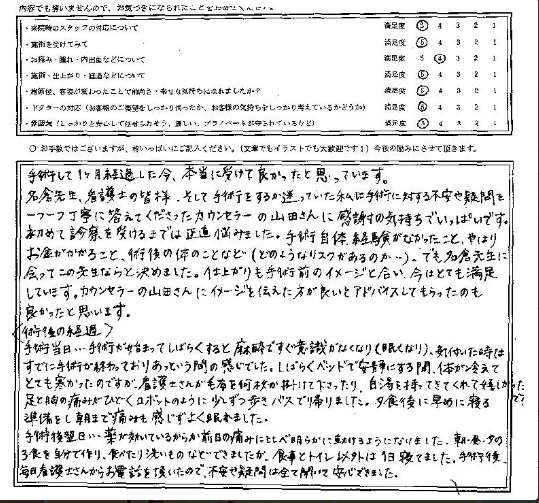 内容でも構いませんので、お気づきになられたことをお書きください。
・来院時のスタッフの対応について 満足度 5 4 3 2 1
・施術を受けてみて 満足度 5 4 3 2 1
・お痛み・腫れ・内出血などについて 満足度 5 4 3 2 1
・施術・仕上がり・経過などについて 満足度 5 4 3 2 1
・施術後、容姿が変わったことで前向き・幸せな気持ちになれましたか? 満足度 5 4 3 2 1
・ドクターの対応(お客様のご要望をしっかり伺ったか、お客様の気持ちをしっかり考えているかどうか) 満足度 5 4 3 2 1
・雰囲気(しっかりと安心して任せられそう、優しい、プライベートが守られているなど) 満足度 5 4 3 2 1
○ お手数ではございますが、枠いっぱいにご記入ください。(文章でもイラストでも大歓迎です!)今後の励みにさせて頂きます。
手術して1ヶ月経過した今、本当に受けて良かったと思っています。
名倉先生、看護士の皆様、そして手術をするか迷っていた私に手術に対する不安や疑問を
一つ一つ丁寧に答えてくださったカウンセラーの山田さんに感謝の気持ちでいっぱいです。
初めて診察を受けるまでは正直悩みました。手術自体経験がなかったこと、やはり
お金がかかること、術後の体のことなど(どのようなリスクがあるのか…)。でも名倉先生に
会ってこの先生ならと決めました。仕上がりも手術前のイメージと合い、今はとても満足
しています。カウンセラーの山田さんにイメージを伝えた方が良いとアドバイスしてもらったのも
良かったと思います。
(術後の経過)
手術当日…手術が始まってしばらくすると麻酔ですぐ意識がなくなり(眠くなり)、気付いた時は
すでに手術が終わっておりあっという間の感じでした。しばらくベッドで安静にする間、体が冷えて
とても寒かったのですが、看護士さんが毛布を何枚か掛けて下さったり、白湯を持ってきてくれて嬉しかったです
足と胸の痛みがひどくロボットのように少しずつ歩きバスで帰りました。夕食後に早めに寝る
準備をし朝まで痛みも感じずよく眠れました。
手術後翌日…薬が効いているからか前日の痛みにもとべ明らかに動けるようになりました。朝・昼・夕の
3食を自分で作り、食べたり洗いものなどできましたが、食事とトイレ以外は1日寝てました。手術後、
毎日看護士さんからお電話を頂いたので、不安や疑問は全て聞いて安心できました。